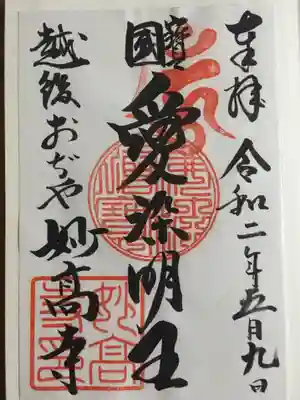 奉拝 令和二年五月九日
國寶 愛染明王
越後おぢや 妙高寺